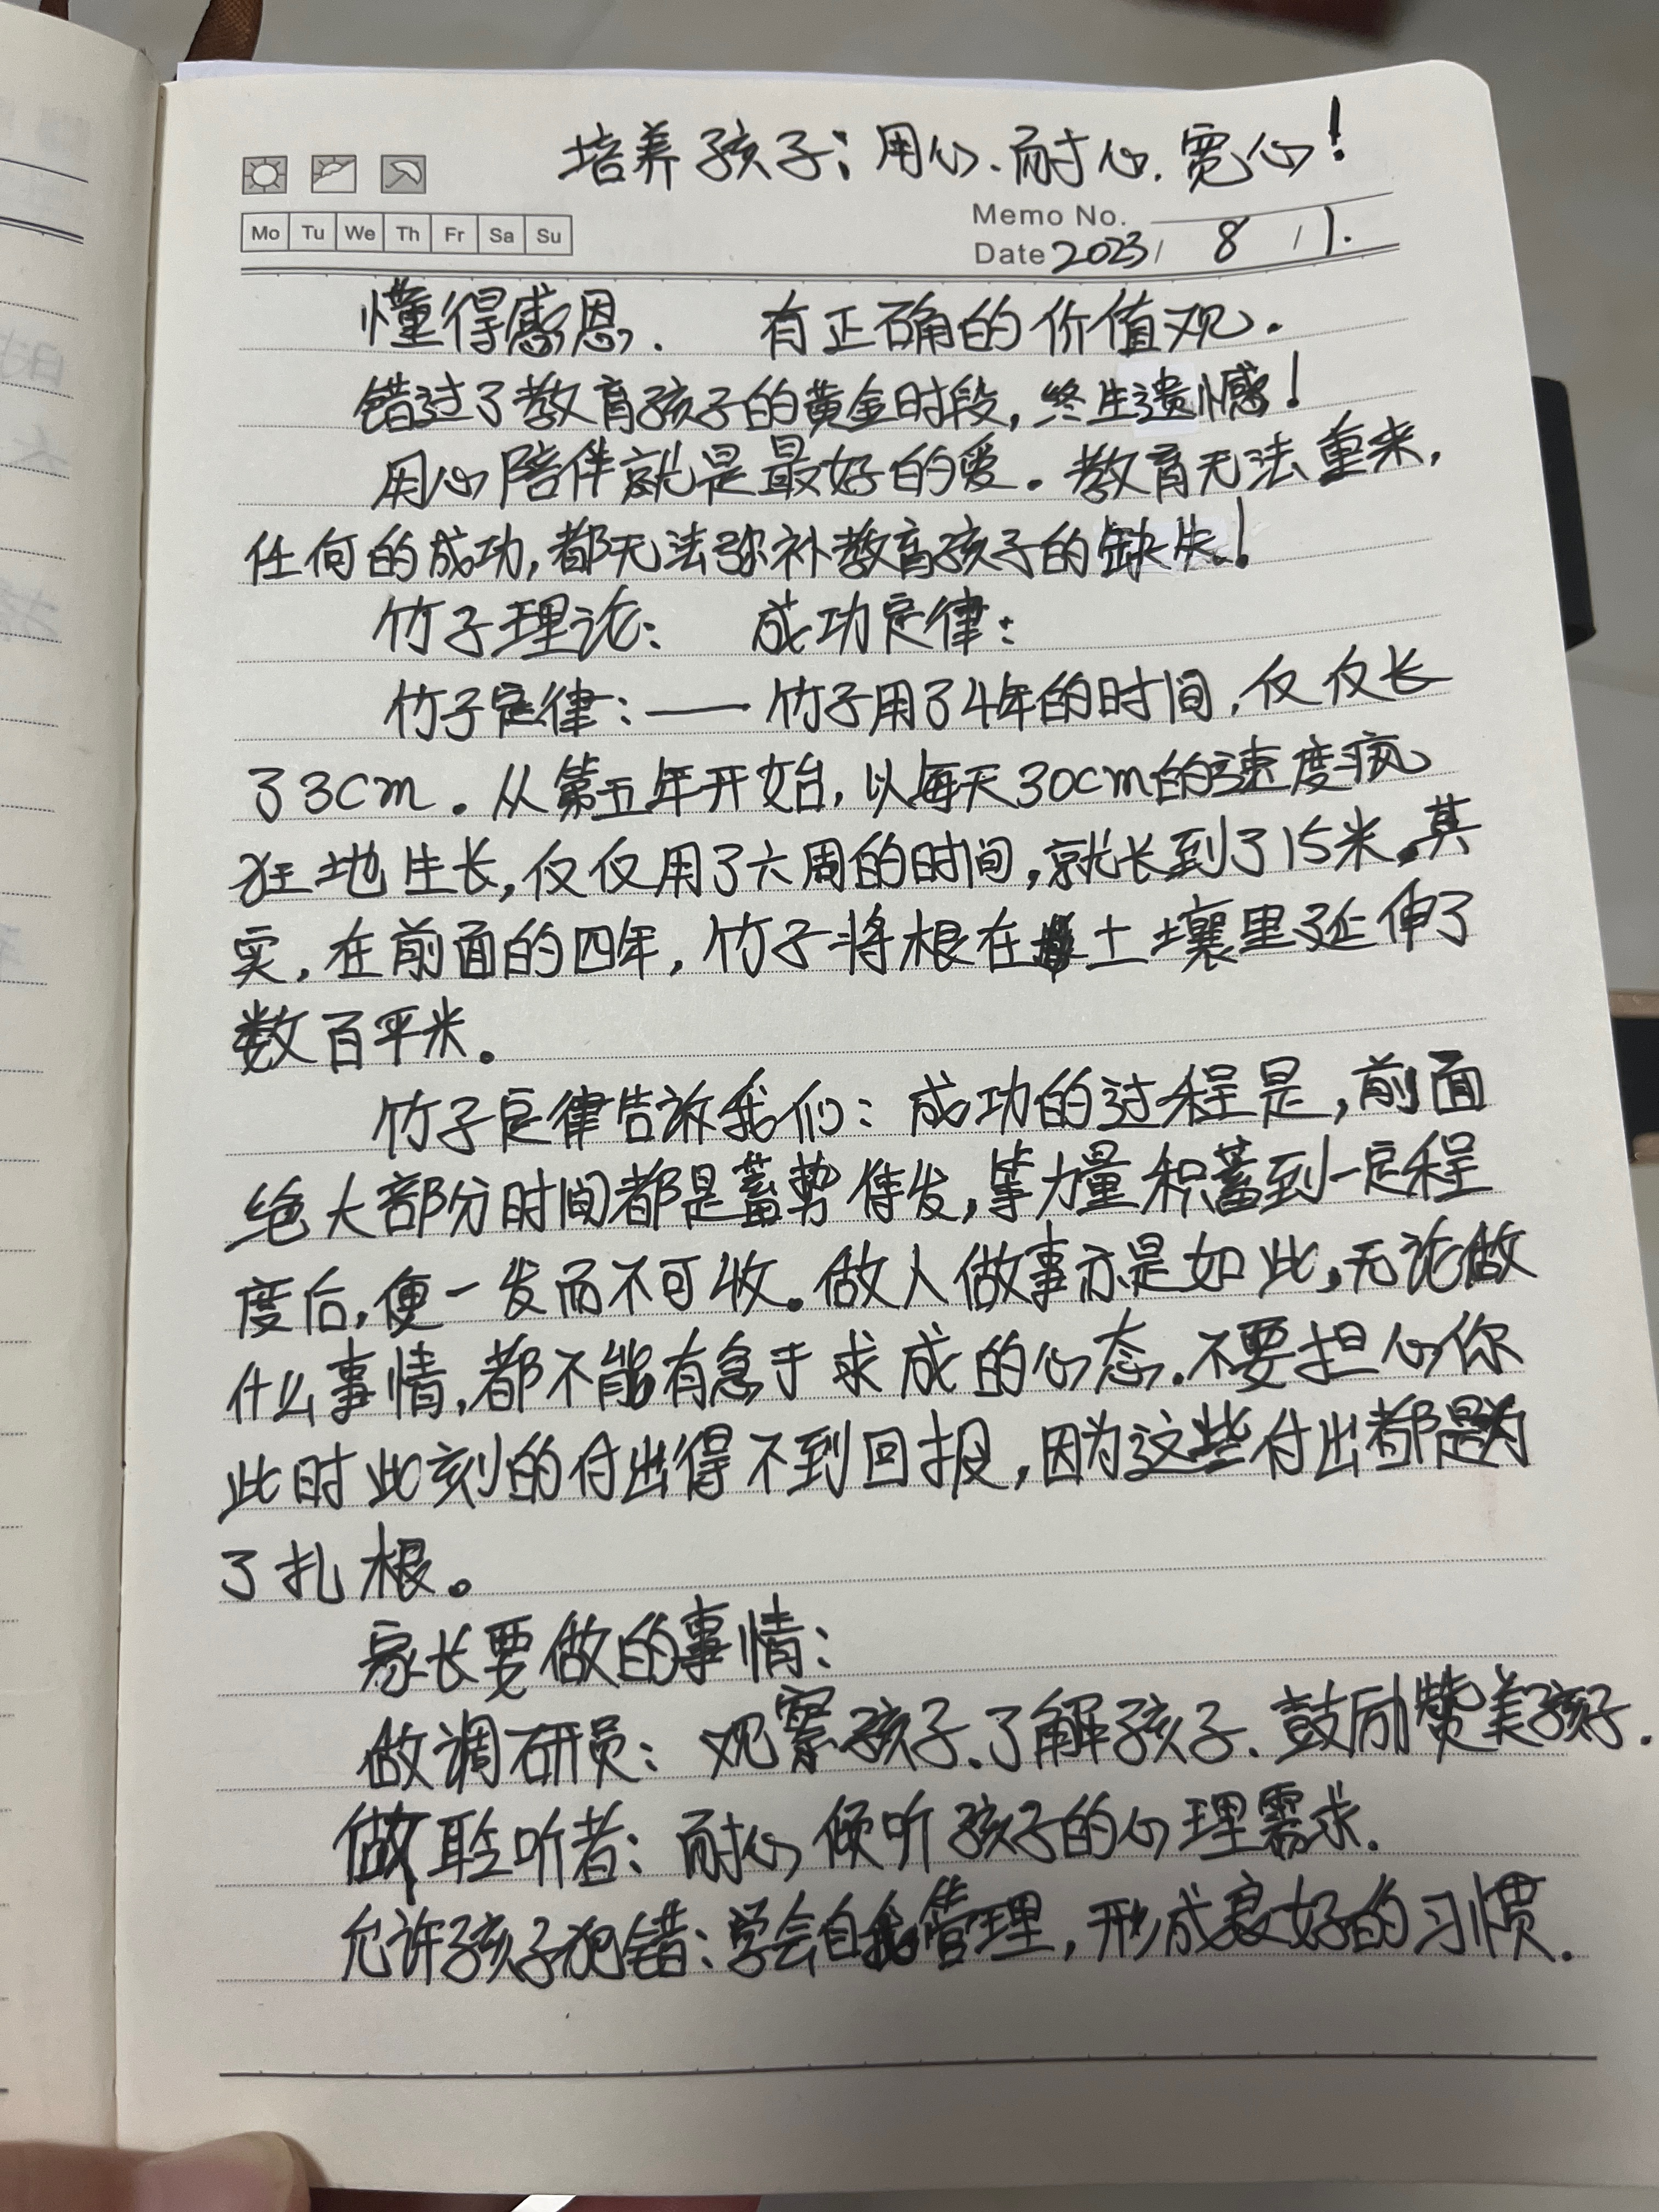 培养孩子：用心、耐心、宽心！
Memo No.
Mo Tu We Th Fr Sa Su
Date 2023 / 8 / 1.
懂得感恩. 有正确的价值观.
错过了教育孩子的黄金时段，终生遗憾！
用心陪伴就是最好的爱。教育无法重来，
任何的成功，都无法弥补教育孩子的缺失！
竹子理论： 成功定律：
竹子定律：—— 竹子用了4年的时间，仅仅长
了3cm。从第五年开始，以每天30cm的速度疯
狂地生长，仅仅用了六周的时间，就长到了15米。其
实，在前面的四年，竹子将根在土壤里延伸了
数百平米。
竹子定律告诉我们：成功的过程是，前面
绝大部分时间都是蓄势待发，等力量积蓄到一定程
度后，便一发而不可收。做人做事亦是如此，无论做
什么事情，都不能有急于求成的心态.不要担心你
此时此刻的付出得不到回报，因为这些付出都是为
了扎根。
家长要做的事情：
做调研员：观察孩子、了解孩子、鼓励赞美孩子.
做聆听者：耐心倾听孩子的心理需求.
允许孩子犯错：学会自我管理，形成良好的习惯.